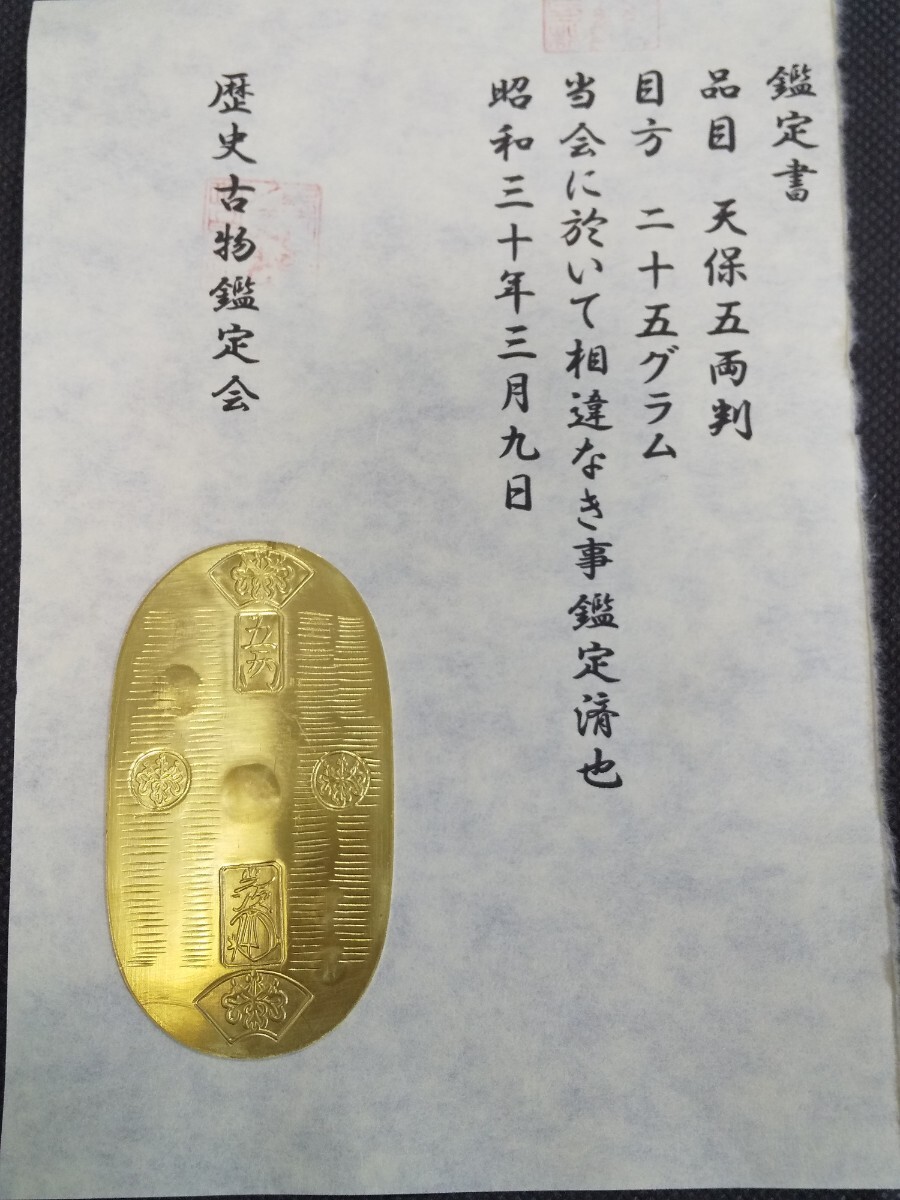 鑑定書
品目 天保五両判
目方 二十五グラム
当会に於いて相違なき事鑑定済也
昭和三十年三月九日
歴史古物鑑定会
五両